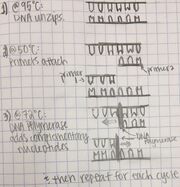 1) @ 95°C:
DNA unzips.
2) @ 50°C:
Primers attach
primer 1
primer 2
3) @ 72°C:
DNA Polymerase
adds complementary
nucleotides
DNA
Polymerase
* then repeat for each cycle